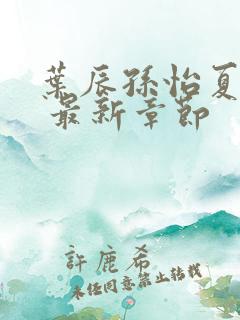 葉辰孫怡夏
最新章節
許鹿希
未经同意禁止转载